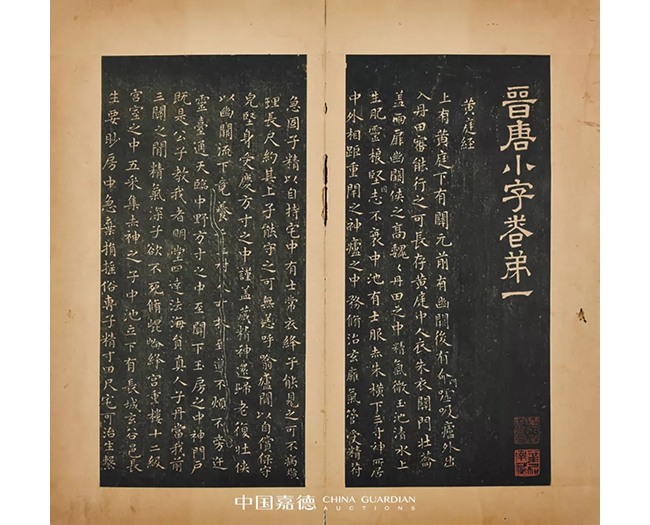 晉唐小字卷第一
黃庭經
上有黃庭下有關元前有幽闕後有命門噓吸廬外出
入丹田審能行之可長存黃庭中人衣朱衣關門壯籥
蓋兩扉幽闕俠之高魏〻丹田之中精氣微玉池清水上
生肥靈根堅志不衰中池有士服赤朱橫下三寸神所居
中外相距重閉之神廬之中務脩治玄膺氣管受精符
急固子精以自持宅中有士常衣絳子能見之可不病橫
理長尺約其上子能守之可無恙呼噏廬間以自償保守
皃堅身受慶方寸之中謹蓋藏精神還歸老復壯俠
以幽闕流下竟養不扞到道不煩不旁迕
靈臺通天臨中野方寸之中至關下玉房之中神門戶
既是公子教我者明堂四達法海負真人子丹當我前
三關之間精氣深子欲不死脩崐崘絳宮重樓十二級
宮室之中五采集赤神之子中池立下有長城玄谷邑長
生要眇房中急棄捐摇俗專子精寸田尺宅可治生繫
中国嘉德 CHINA GUARDIAN
AUCTIONS